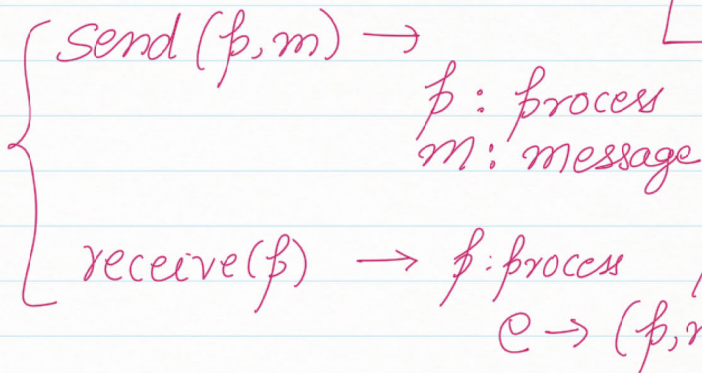 send (p, m) →
p : process
m : message
receive(p) → p : process
e → (p,